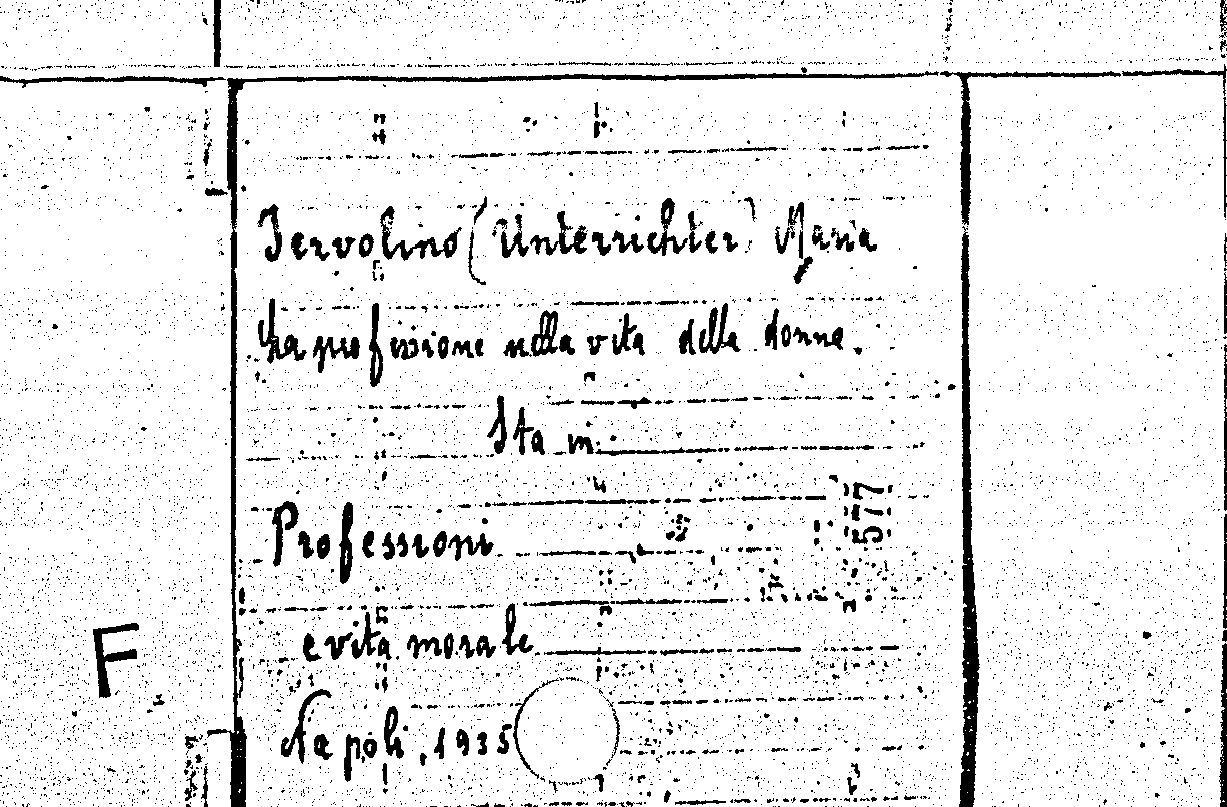 Jervolino (Unterrichter) Maria
La professione nella vita della donna.
Sta in
577
Professioni
e vita morale
F
Napoli, 1935